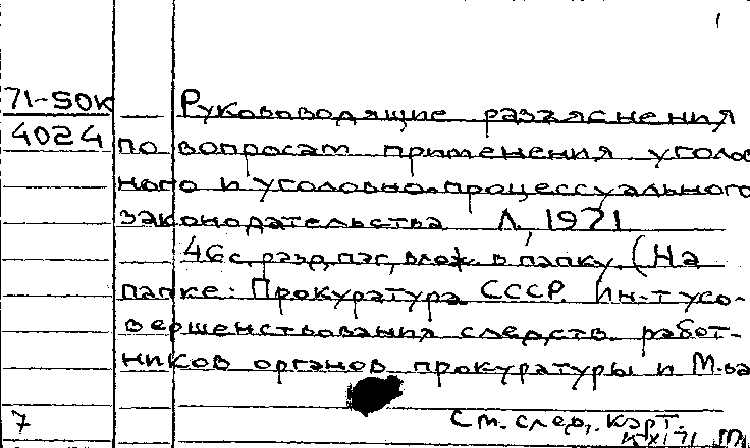 1
71-SOK
4024
Руководящие разъяснения
по вопросам применения уголов
ного и уголовно-процессуального
законодательства Л, 1971
46с. разд. паг, влож. в папку. (На
папке: Прокуратура СССР. Ин-т усо-
вершенствования следств. работ-
ников органов прокуратуры и М-ва
См. след. карт.
7